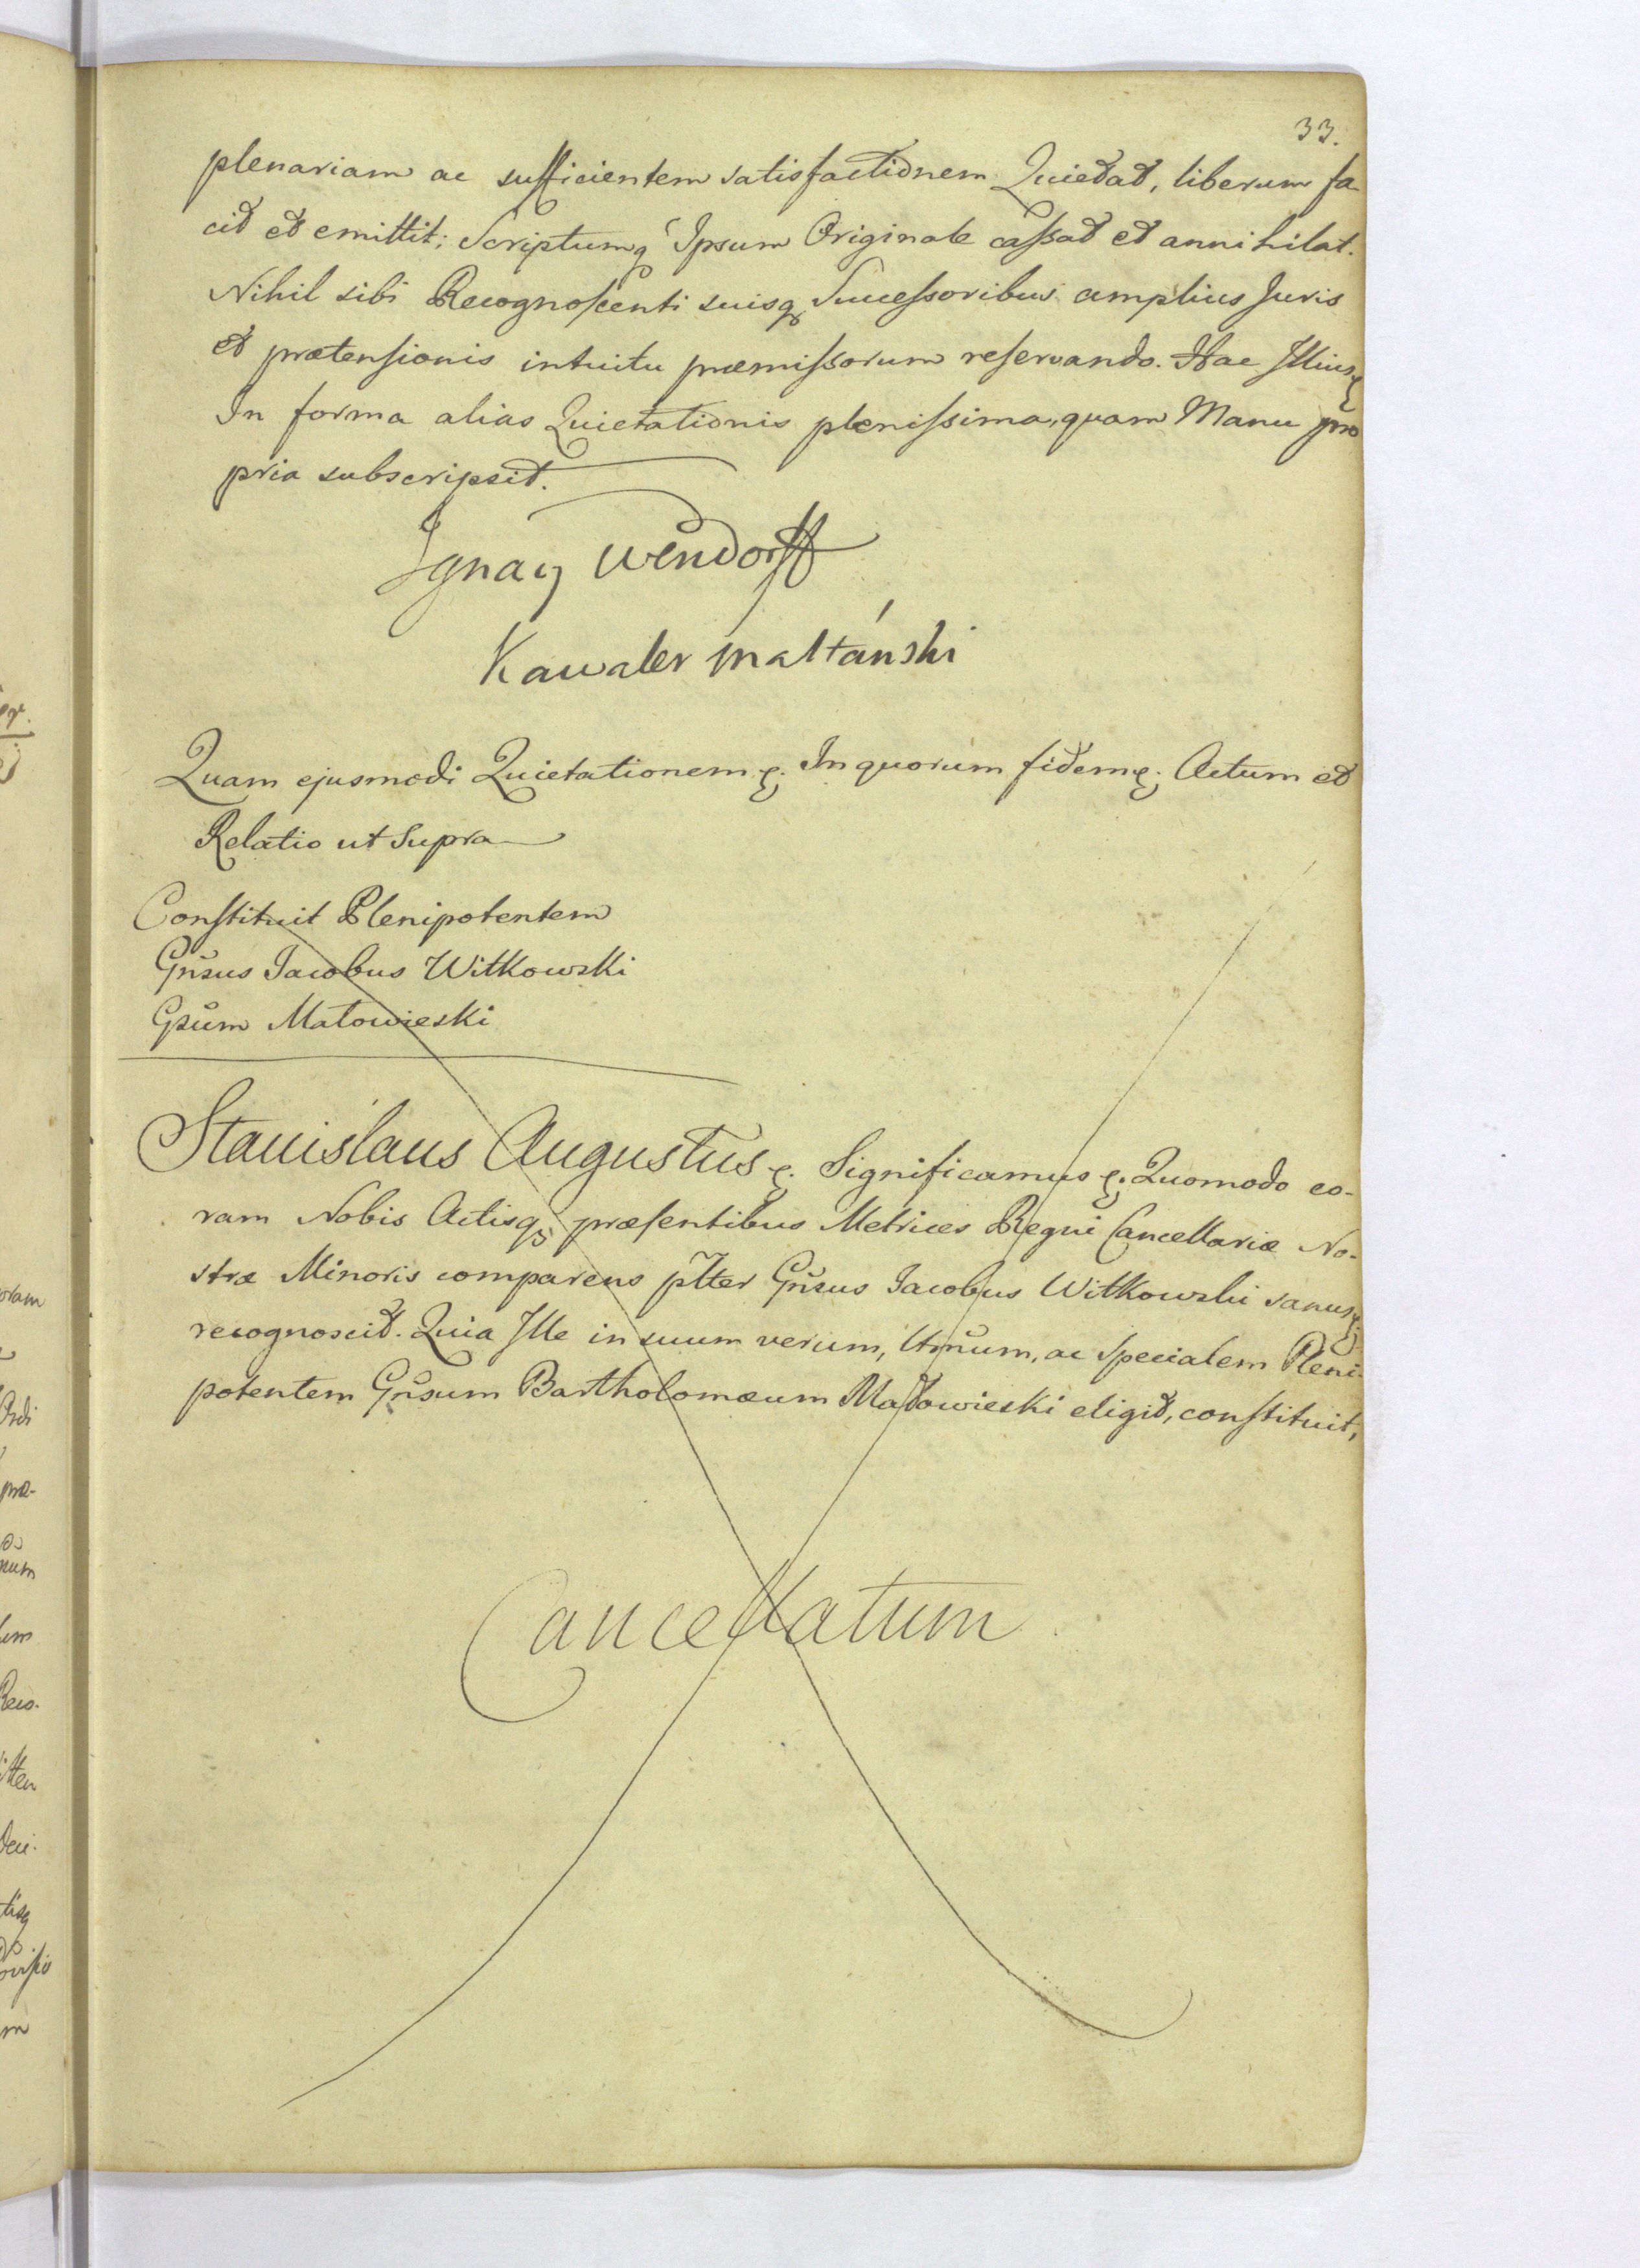 33.
plenariam ac sufficientem satisfactionem Quietat, liberum fa-
cit et emittit; Scriptumq Ipsum Originale cassat et annihilat.
Nihil sibi Recognoscenti suisq Successoribus amplius Juris
et prætensionis intuitu præmissorum reservando. Hac Illius
In forma alias Quietationis plenissima, quam Manu pro
pria subscripsit.
Ignacy Wendorff
Kawaler Maltański
Quam ejusmodi Quietationem. In quorum fidem. Actum et
Relatio ut Supra
Constituit Plenipotentem
Gnsus Jacobus Witkowski
Gsum Małowieski
Stanislaus Augustus. Significamus. Quomodo co-
ram Nobis Actisq præsentibus Metrices Regni Cancellariæ No-
stræ Minoris comparens plter Gnsus Jacobus Witkowski sanus
recognoscit. Quia Ille in suum verum, ltmum, ac specialem Pleni-
potentem Gnsum Bartholomæum Małowieski eligit, constituit,
Cancellatum